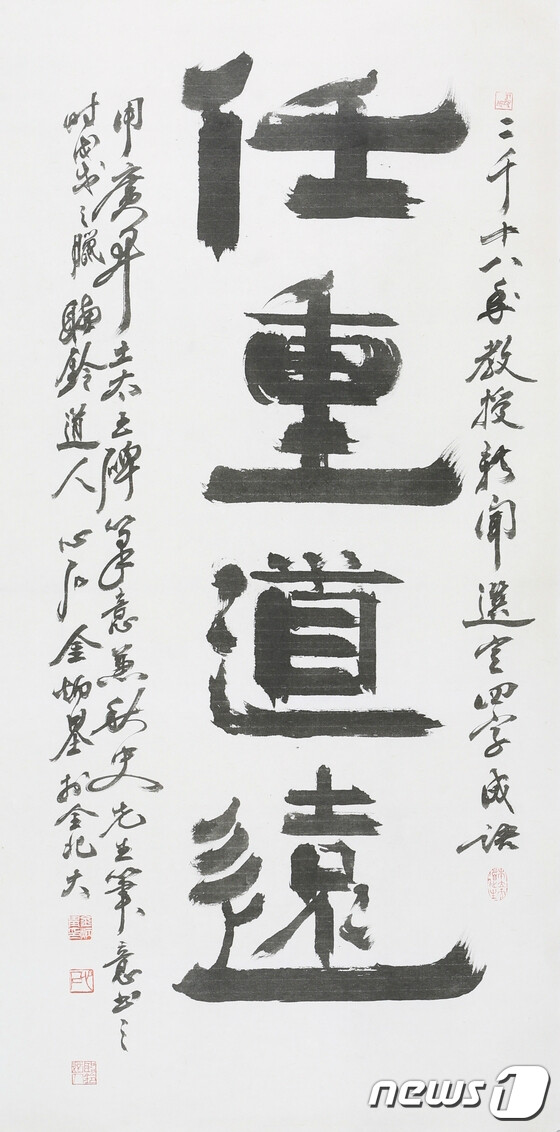 二千十八年教授新聞選定四字成語
任重道遠
用廣開土太王碑筆意兼秋史先生筆意書之
時戊戌之臘聽鈴道人心石金炳基於全北大
news1